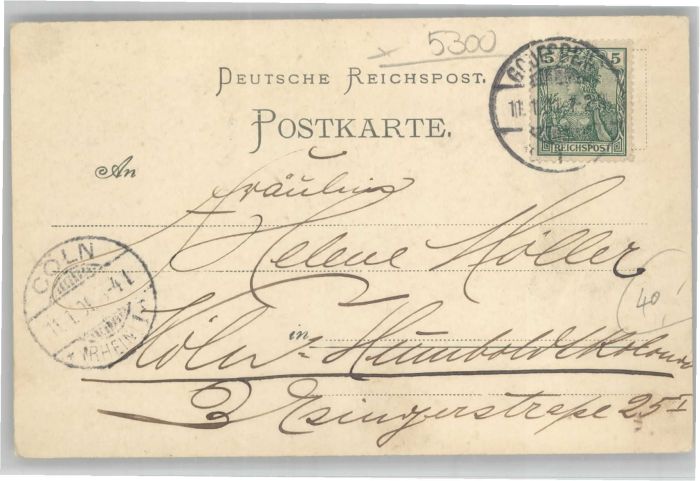 5300
DEUTSCHE REICHSPOST.
POSTKARTE.
GODESBERG
5 5
REICHSPOST
An
Fräulein
Helene Möller
CÖLN
11.1.01. 4-
(RHEIN)
40
in Köln-Humboldtkolonie
25 I